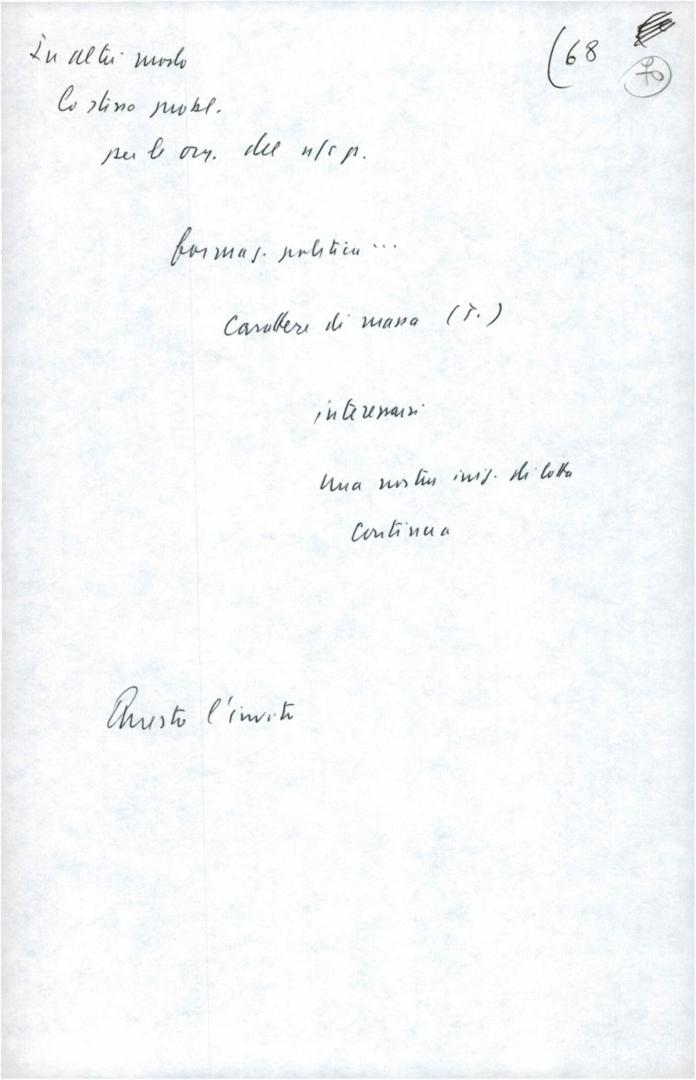 (68
70
In altri modo
lo stesso probl.
per le org. del n/s p.
formaz. politica ...
Carattere di massa (T.)
interessarsi
una nostra iniz. di lotta
Continua
Questo l'invito